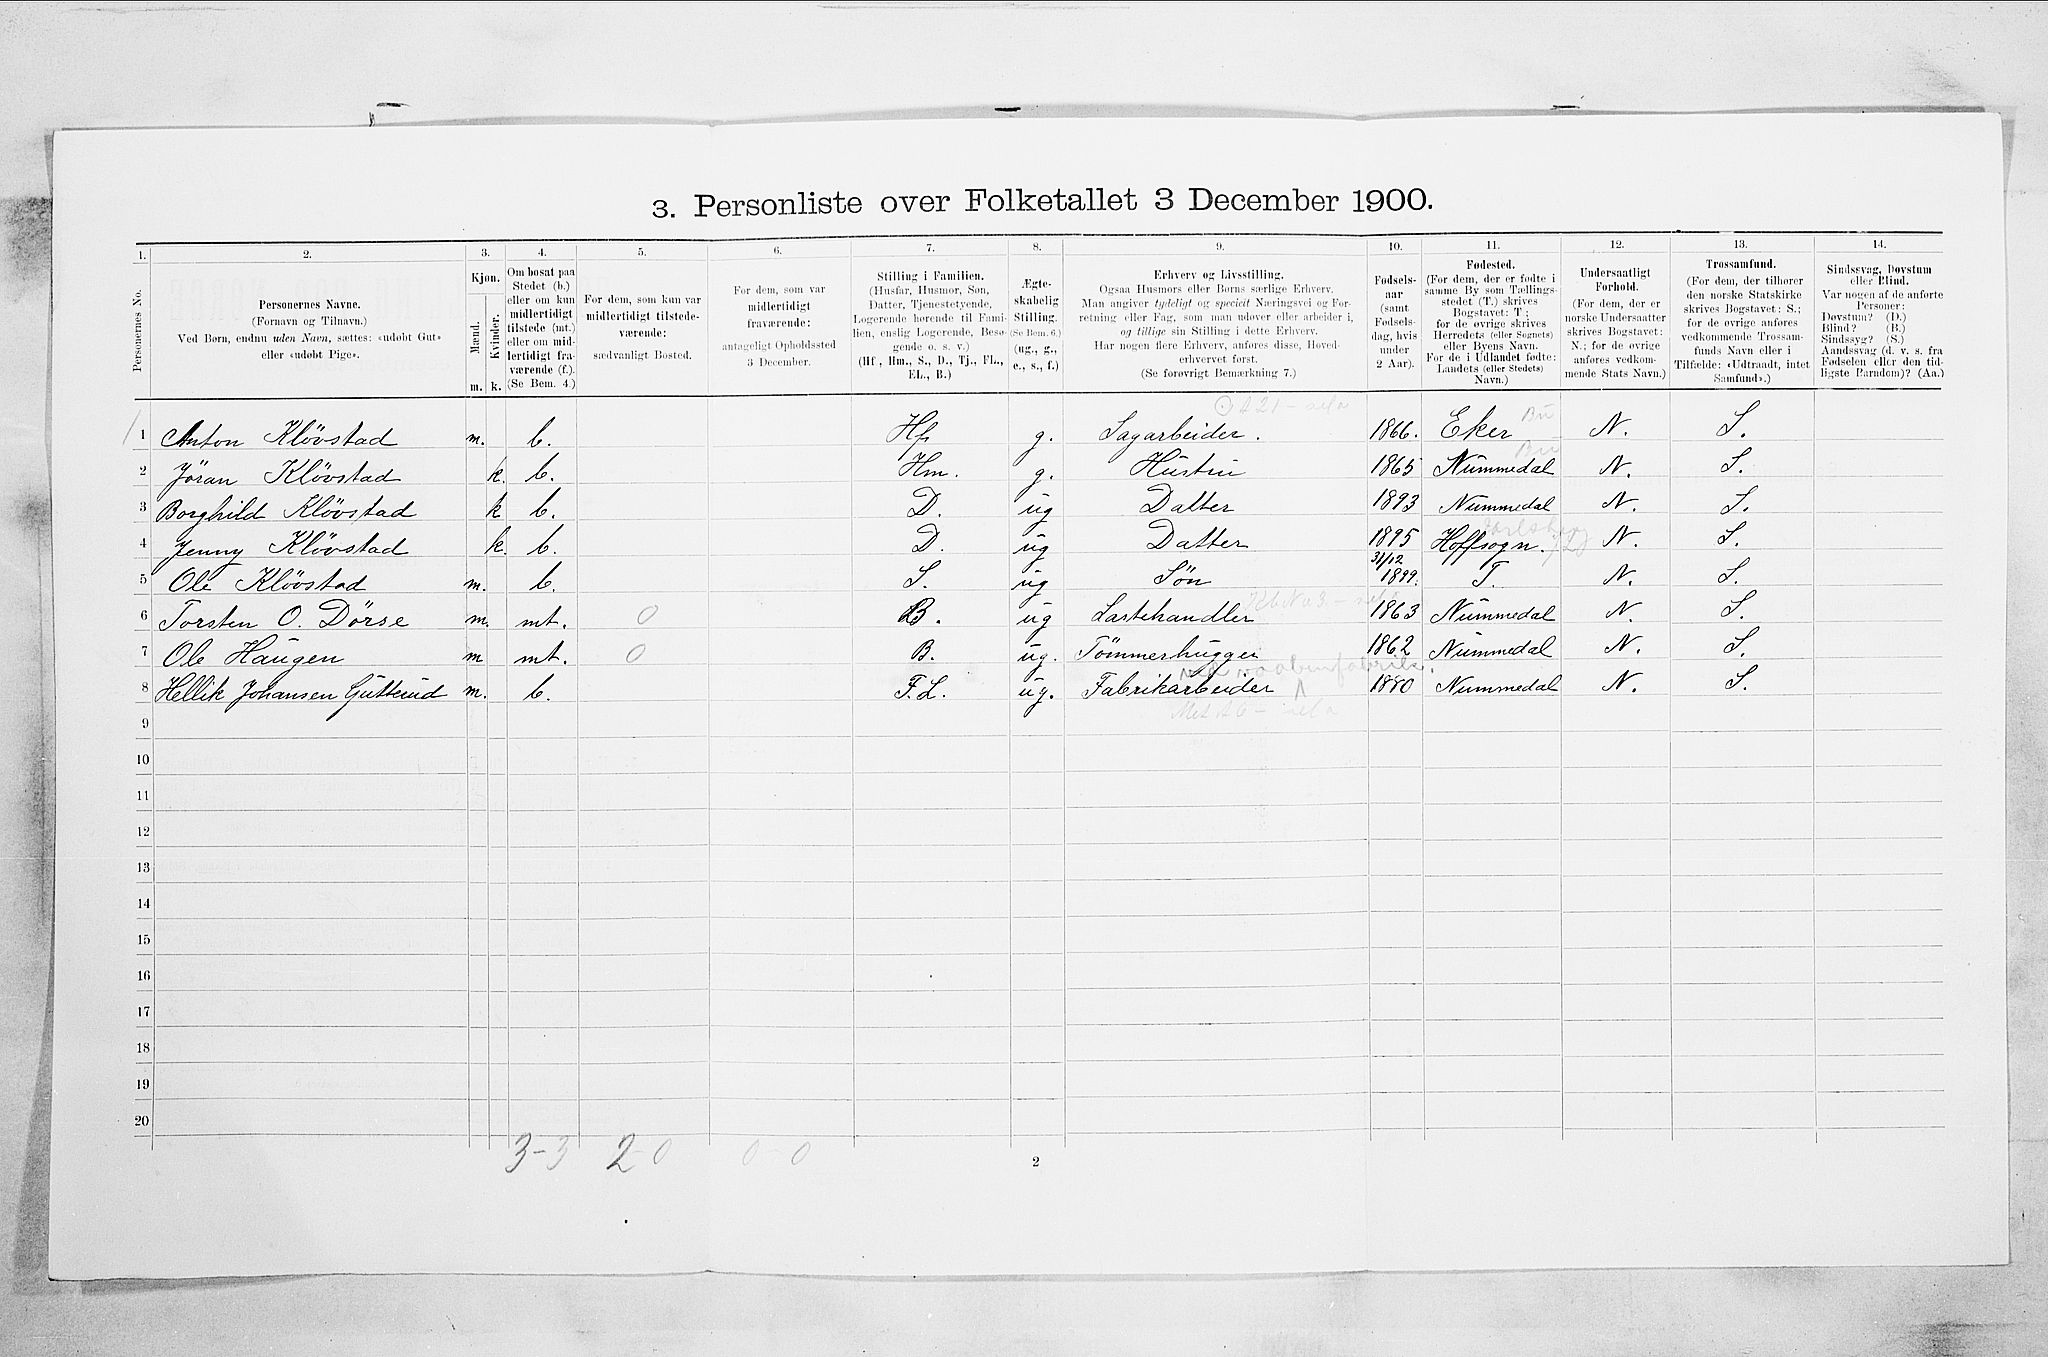 3. Personliste over Folketallet 3 December 1900.
1. 2. 3. 4. 5. 6. 7. 8. 9. 10. 11. 12. 13. 14.
Personernes No.
Personernes Navne.
(Fornavn og Tilnavn.)
Ved Børn, endnu uden Navn, sættes: «udøbt Gut»
eller «udøbt Pige».
Kjøn.
Mænd.
Kvinder.
m. k.
Om bosat paa
Stedet (b.)
eller om kun
midlertidigt
tilstede (mt.)
eller om mid-
lertidigt fra-
værende (f.).
(Se Bem. 4.)
For dem, som kun var
midlertidigt tilstede-
værende:
sædvanligt Bosted.
For dem, som var
midlertidigt
fraværende:
antageligt Opholdssted
3 December.
Stilling i Familien.
(Husfar, Husmor, Søn,
Datter, Tjenestetyende,
Logerende hørende til Fami-
lien, enslig Logerende, Besø-
gende o. s. v.)
(Hf., Hm., S., D., Tj., FL.,
EL., B.)
Ægte-
skabelig
Stilling.
(Se Bem. 6.)
(ug., g.,
e., s., f.)
Erhverv og Livsstilling.
Ogsaa Husmors eller Børns særlige Erhverv.
Man angiver tydeligt og specielt Næringsvei og For-
retning eller Fag, som man udøver eller arbeider i,
og tillige sin Stilling i dette Erhverv.
Har nogen flere Erhverv, anføres disse, Hoved-
erhvervet først.
(Se forøvrigt Bemærkning 7.)
Fødsels-
aar
(samt
Fødsels-
dag, hvis
under
2 Aar).
Fødested.
(For dem, der er fødte i
samme By som Tællings-
stedet (T.) skrives
Bogstavet: T.;
for de øvrige skrives
Herredets (eller Sognets)
eller Byens Navn.
For de i Udlandet fødte:
Landets (eller Stedets)
Navn.)
Undersaatligt
Forhold.
(For dem, der er
norske Undersaatter
skrives Bogstavet:
N.; for de øvrige
anføres vedkom-
mende Stats Navn.)
Trossamfund.
(For dem, der tilhører
den norske Statskirke
skrives Bogstavet: S.;
for de øvrige anføres
vedkommende Trossam-
funds Navn eller i
Tilfælde: «Udtraadt, intet
Samfund».)
Sindssvag, Døvstum
eller Blind.
Var nogen af de anførte
Personer:
Døvstum? (D.)
Blind? (B.)
Sindssyg? (S.)
Aandssvag (d. v. s. fra
Fødselen eller den tid-
ligste Barndom)? (Aa.)
1 Anton Kløvstad m. b. Hf g. Sagarbeider. 1866. Eker N. S.
2 Jøran Kløvstad k. b. Hm. g. Hustru 1865 Nummedal N. S.
3 Borghild Kløvstad k b. D. ug Datter 1893 Nummedal N. S.
4 Jenny Kløvstad k. b. D. ug Datter 1895 Hoffsogn. N. S.
5 Ole Kløvstad m. b. S. ug Søn 31/12 1899. T. N. S.
6 Torsten O. Dørse m. mt. 0 B. ug Lastehandler 1863 Nummedal N. S.
7 Ole Haugen m mt. 0 B. ug. Tømmerhugger 1862 Nummedal N. S.
8 Hellik Johansen Gutterud m. b. F.L. ug. Fabrikarbeider 1880 Nummedal N. S.
9
10
11
12
13
14
15
16
17
18
19
20
3-3 2-0 0-0
2